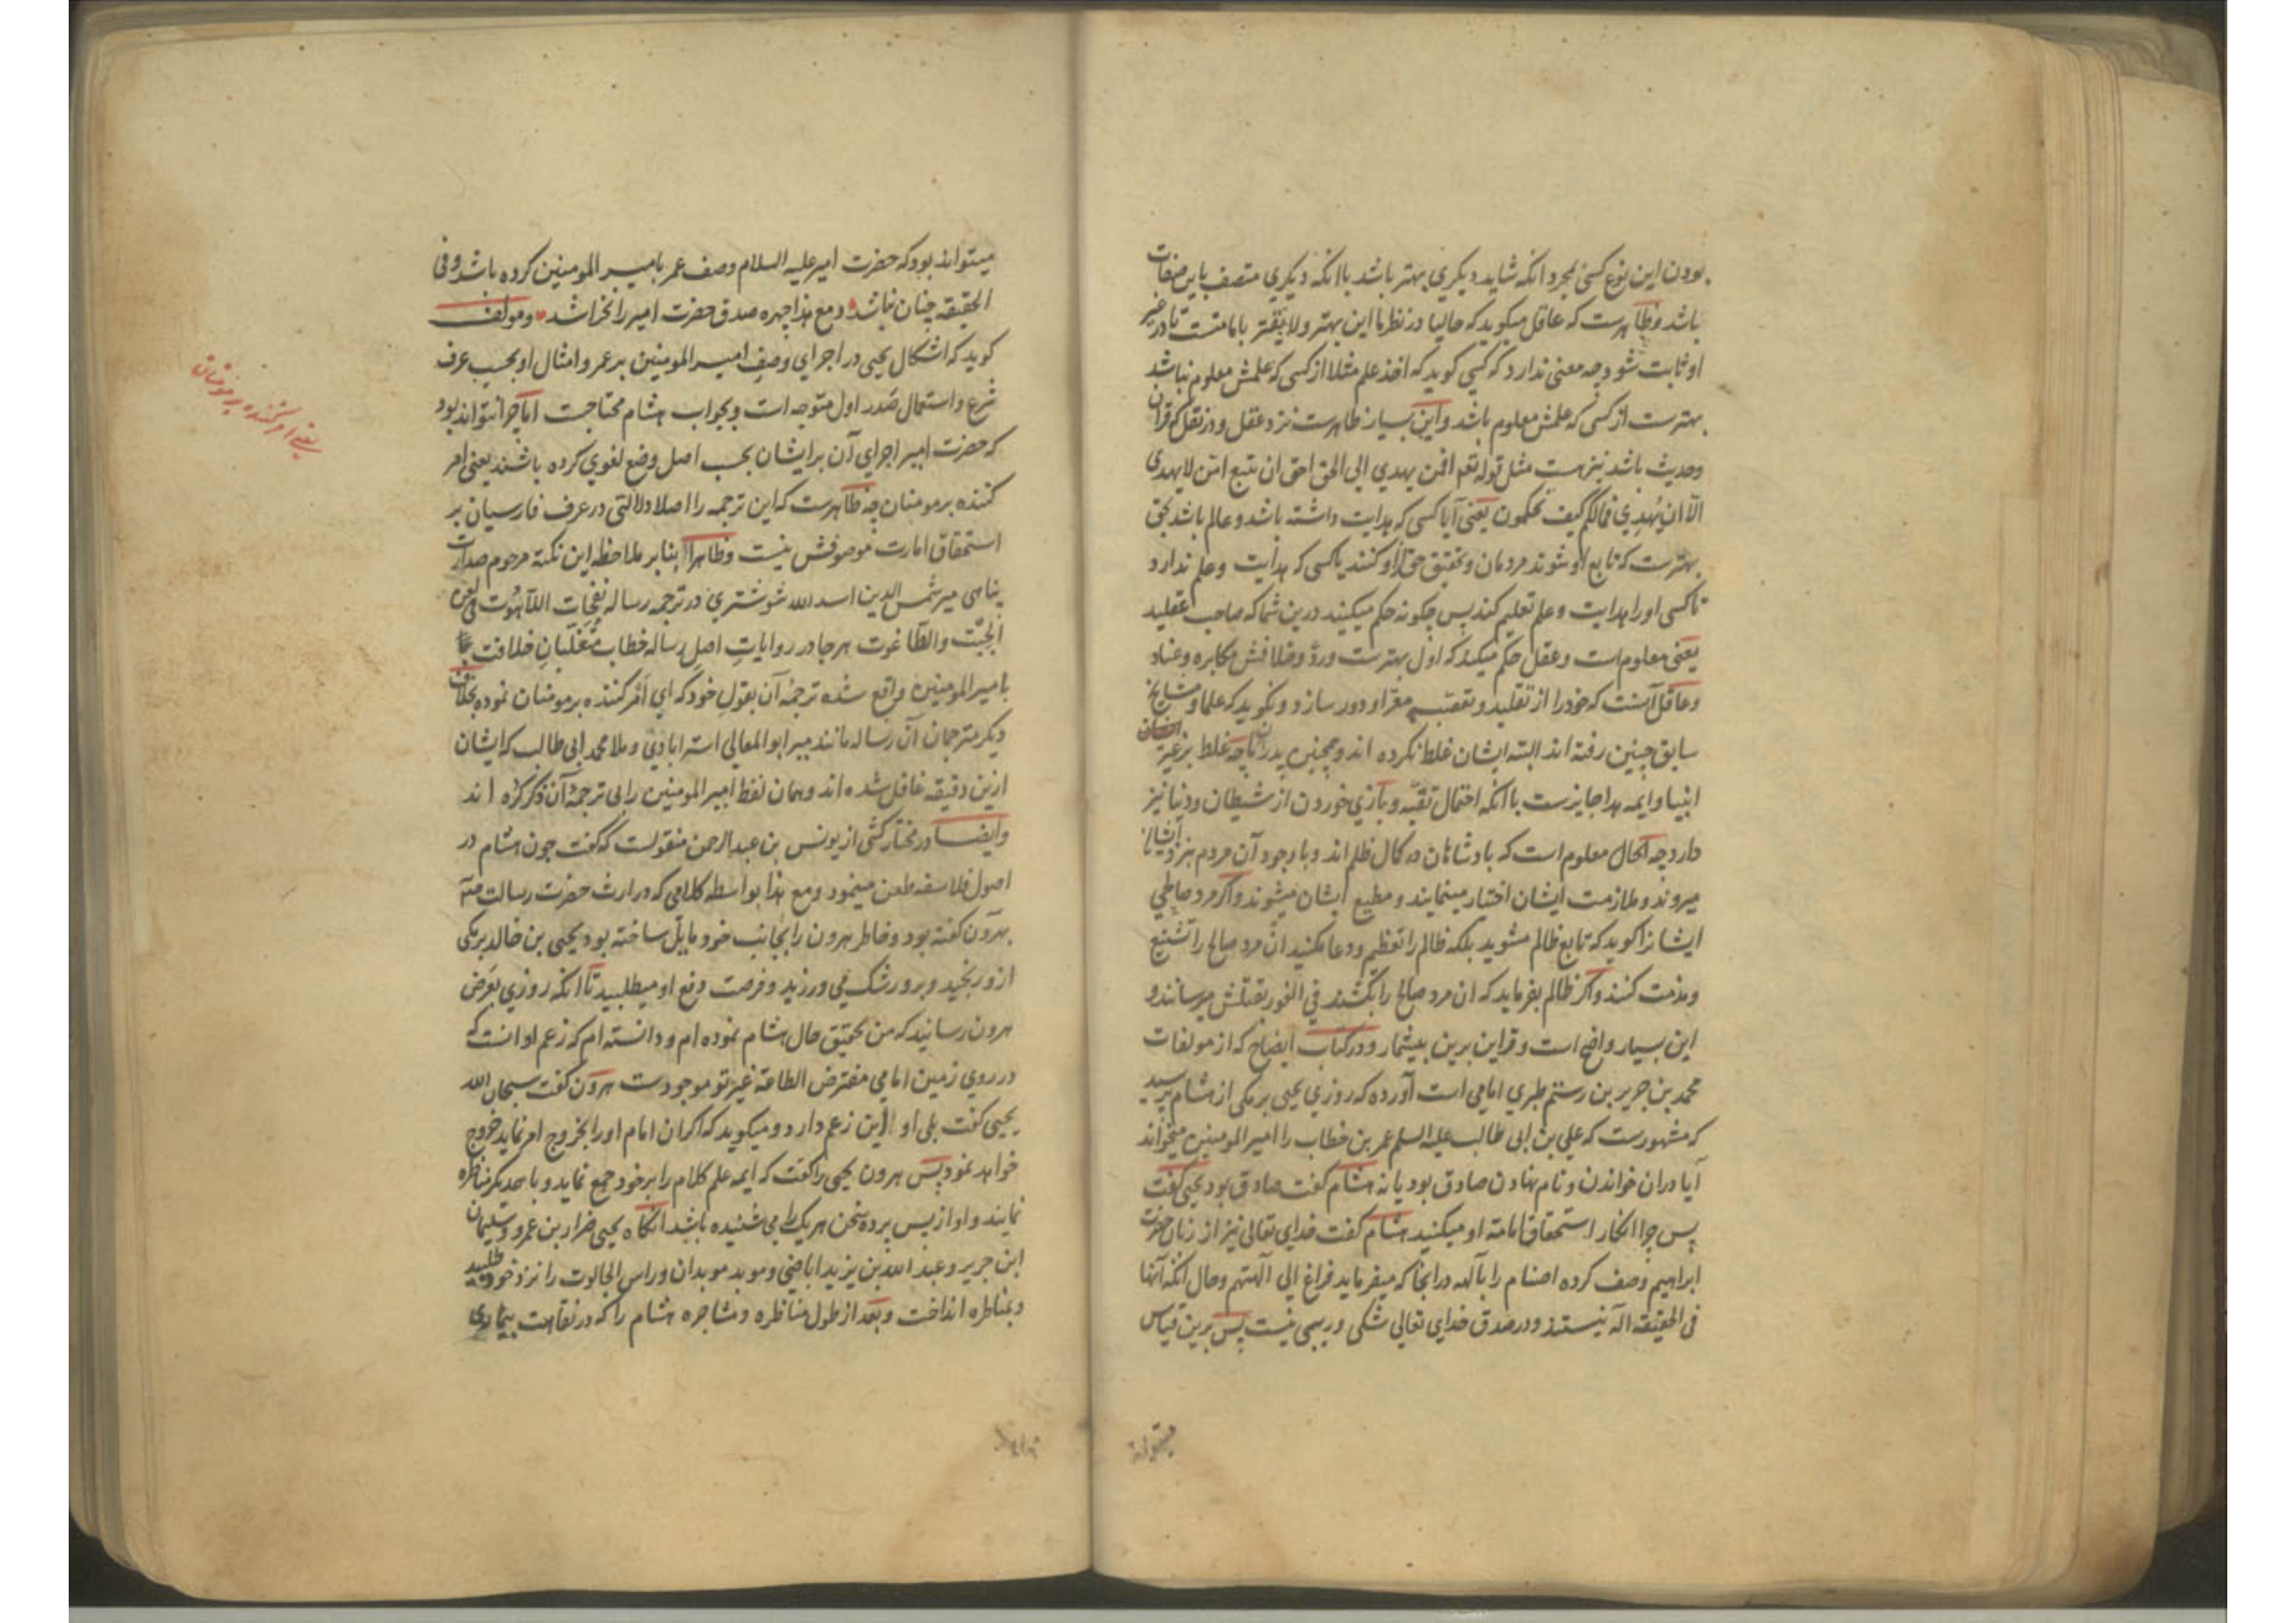 بودن این نوع کسی بمجرد انکه شاید دیکری بهتر باشد باانکه دیکری متصف باین صفات
باشد وظاهرست که عاقل میکوید که حالیا در نظر ما این بهتر ولایقتر بامامتست تا در غیر
او ثابت شود چه معنی ندارد که کسی کوید که اخذ علم مثلا از کسی که علمش معلوم نباشد
بهترست از کسی که علمش معلوم باشد واین بسیار ظاهرست نزد عقل ودر نقل که قرآن
وحدیث باشد نیز هست مثل قوله تعه افمن یهدی الی الحق احق ان یتبع امن لایهدی
الا ان یهدی فمالکم کیف تحکمون یعنی آیا کسی که هدایت داشته باشد وعالم باشد بحق
بهترست که تابع او شوند مردمان وتحقیق حق ازو کنند یا کسی که هدایت وعلم ندارد
تا کسی اورا هدایت وعلم تعلیم کند پس چکونه حکم میکنید درین شما که صاحب عقلید
یعنی معلوم است وعقل حکم میکند که اول بهترست وردّ وخلافش مکابره وعناد
وعاقل آنست که خودرا از تقلید وتعصب مقرا ودور سازد ونکوید که علما ومشایخ
سابق چنین رفته اند البته ایشان غلط نکرده اند وهمچنین پدران ما چه غلط بر غیر
انبیا وایمه هدا جایزست باانکه احتمال تقیه وبازی خوردن از شیطان ودنیا نیز
دارد چه الحال معلوم است که بادشاهان در کمال ظلم اند وباوجود آن مردم بنزد ایشان
میروند وملازمت ایشان اختیار مینمایند ومطیع ایشان میشوند واکر مرد صالحی
ایشانرا کوید که تابع ظالم مشوید بلکه ظالم را تعظیم ودعا مکنید ان مرد صالح را تشنیع
ومذمت کنند واکر ظالم بفرماید که ان مرد صالح را بکشند فی الفور بقتلش میرسانند و
این بسیار واضح است وقراین برین بیشمار ودر کتاب ایضاح که از مولفات
محمد بن جریر بن رستم طبری امامی است آورده که روزی یحیی برمکی از هشام پرسید
که مشهورست که علی بن ابی طالب علیه السلم عمر بن خطاب را امیر المومنین میخواند
آیا دران خواندن ونام نهادن صادق بود یا نه هشام کفت صادق بود یحیی کفت
پس چرا انکار استحقاق امامته او میکنید هشام کفت خدای تعالی نیز از زبان حضرت
ابراهیم وصف کرده اصنام را بآلهه درانجا که میفرماید فراغ الی آلهتهم وحال انکه آنها
فی الحقیقه اله نیستند ودر صدق خدای تعالی شکی وریبی نیست پس برین قیاس
میتواند
میتواند بود که حضرت امیر علیه السلام وصف عمر بامیر المومنین کرده باشد وفی
الحقیقه چنان نباشد ومع هذا چهره صدق حضرت امیر را نخراشد ومولف
کوید که اشکال یحیی در اجرای وصف امیر المومنین بر عمر وامثال او بحسب عرف
شرع واستعمال صدر اول متوجه است وبجواب هشام محتاجست اما چرا نتواند بود
که حضرت امیر اجرای آن برایشان بحسب اصل وضع لغوی کرده باشند یعنی امر
کننده بر مومنان چه ظاهرست که این ترجمه را اصلا دلالتی در عرف فارسیان بر
استحقاق امارت موصوفش نیست وظاهرا بنابر ملاحظه این نکته مرحوم صدارت
پناهی میر شمس الدین اسد الله شوشتری در ترجمه رساله نفحات اللآهوت فی لعن
الجبت والطاغوت هرجا در روایات اصل رساله خطاب متغلبان خلافت
بامیر المومنین واقع شده ترجمه آن بقول خود که ای امر کننده بر مومنان نموده بخلاف
دیکر مترجمان آن رساله مانند میر ابو المعالی استرابادی وملا محمد ابی طالب که ایشان
ازین دقیقه غافل شده اند وهمان لفظ امیر المومنین را بی ترجمه آن ذکر کرده اند
وایضا در مختار کشی از یونس بن عبد الرحمن منقولست که کفت چون هشام در
اصول فلاسفه طعن مینمود ومع هذا بواسطه کلامی که در ارث حضرت رسالت
بهرون کفته بود وخاطر هرون را بجانب خود مایل ساخته بود یحیی بن خالد برمکی
ازو رنجید وبرو رشک می ورزید وفرصت دفع او میطلبید تا انکه روزی بعرض
هرون رسانید که من تحقیق حال هشام نموده ام ودانسته ام که زعم او انست که
در روی زمین امامی مفترض الطاعه غیر تو موجودست هرون کفت سبحان الله
یحیی کفت بلی او این زعم دارد ومیکوید که اکر ان امام اورا بخروج امر نماید خروج
خواهد نمود پس هرون یحیی را کفت که ایمه علم کلام را بر خود جمع نماید وبا همدیکر مناظره
نمایند واو از پس پرده سخن هر یک را می شنیده باشد انکاه یحیی ضرار بن عمرو وسلیمان
ابن جریر وعبد الله بن یزید اباضی وموبد موبدان وراس الجالوت را نزد خود طلبیده
بمناظره انداخت وبعد از طول مناظره ومشاجره هشام را که در نقاهت بیماری
یعنی امر کننده بر مومنان